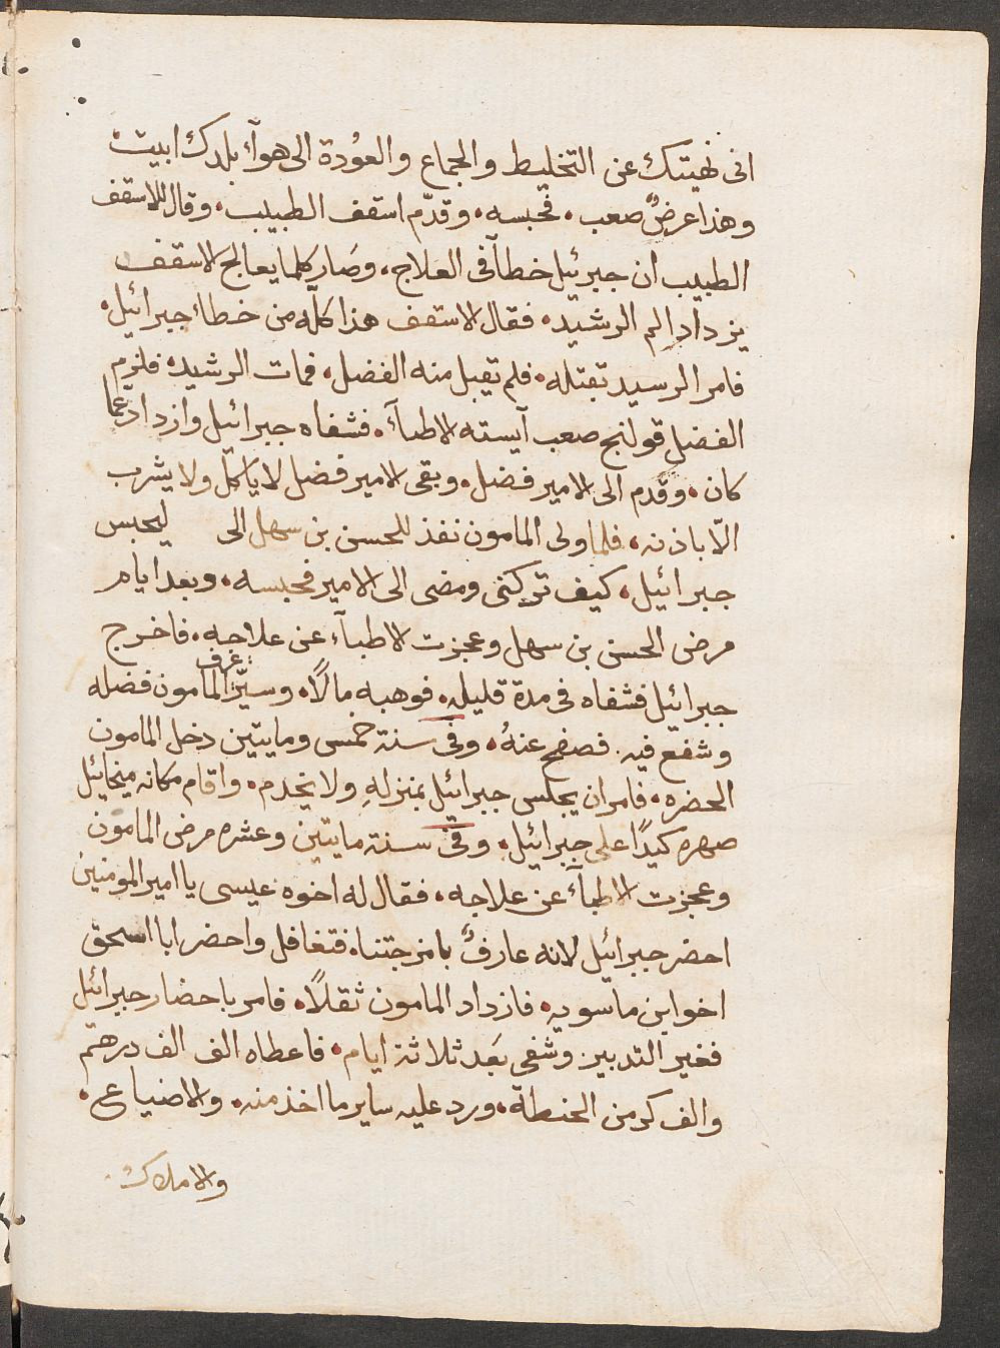 انى نهيتك عن التخليط والجماع والعودة الى هوآء بلدك ابيت
وهذا عرض صعب. فحبسه. وقدّم اسقف الطبيب. وقال للاسقف
الطبيب ان جبرئيل خطآ فى العلاج. وصَار كلما يعالج الاسقف
يزداد الم الرشيد. فقال الاسقف هذا كله من خطاء جبرائيل.
فامر الرسيد بقتله. فلم تقبل منه الفضل. فمات الرشيد. فلزم
الفضل قولنج صعب آيسته الاطبآء. فشفاه جبرائيل وازداد عما
كان. وقدم الى الامير فضل. وبقى الامير فضل لا ياكل ولا يشرب
الّا باذنه. فلما ولى المامون نفذ للحسن بن سهل الى ليحبس
جبرائيل. كيف تركنى ومضى الى الامير فحبسه. وبعد ايام
مرض الحسن بن سهل وعجزت الاطبآء عن علاجه. فاخرج
جبرائيل فشفاه فى مدة قليله. فوهبه مالًا. وسيّر عرف المامون فضله
وشفع فيه. فصفح عنهُ. وفى سنة خمس ومايتين دخل المامون
الحضره. فامر ان يجلس جبرائيل بمنزلهِ ولا يخدم. واقام مكانه ميخائيل
صهره كيدًا على جبرائيل. وفى سنة مايتين وعشره مرض المامون
وعجزت الاطبآء عن علاجه. فقال له اخوه عيسى يا امير المومنين
احضر جبرائيل لانه عارفٌ بامزجتنا. فتغافل واحضر ابا اسحق
اخو ابن ماسويه. فازداد المامون ثقلًا. فامر باحضار جبرائيل
فغير التدبير. وشفى بَعد ثلاثة ايام. فاعطاه الف الف درهم
والف كر من الحنطة. ورد عليه ساير ما اخذ منه. والاضياع.
والاملاك